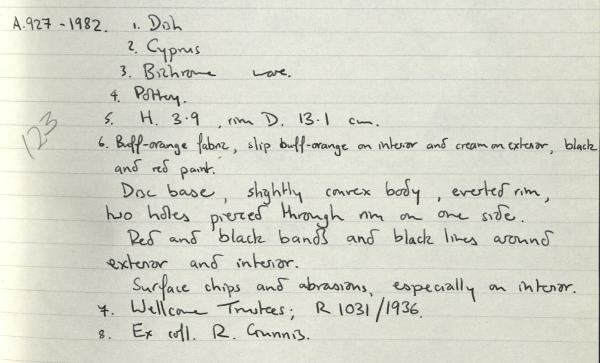 A.927-1982. 1. Dish
2. Cyprus
3. Bichrome ware.
4. Pottery.
5. H. 3.9, rim D. 13.1 cm.
123
6. Buff-orange fabric, slip buff-orange on interior and cream on exterior, black
and red paint.
Disc base, slightly convex body, everted rim,
two holes pierced through rim on one side.
Red and black bands and black lines around
exterior and interior.
Surface chips and abrasions, especially on interior.
7. Wellcome Trustees; R 1031/1936.
8. Ex coll. R. Gunnis.